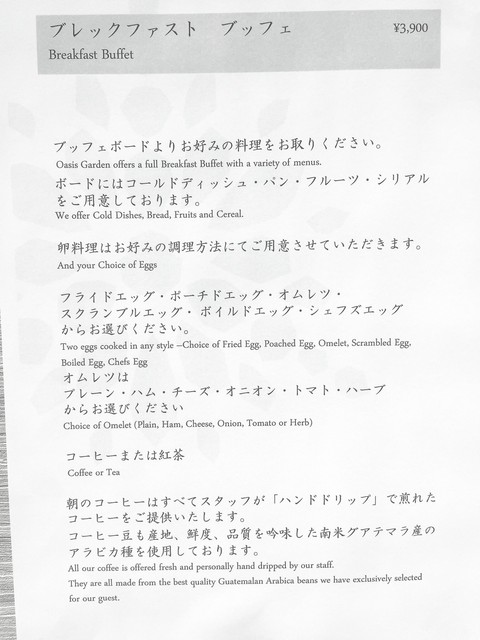 ブレックファスト　ブッフェ ¥3,900
Breakfast Buffet
ブッフェボードよりお好みの料理をお取りください。
Oasis Garden offers a full Breakfast Buffet with a variety of menus.
ボードにはコールドディッシュ・パン・フルーツ・シリアル
をご用意しております。
We offer Cold Dishes, Bread, Fruits and Cereal.
卵料理はお好みの調理方法にてご用意させていただきます。
And your Choice of Eggs
フライドエッグ・ポーチドエッグ・オムレツ・
スクランブルエッグ・ボイルドエッグ・シェフズエッグ
からお選びください。
Two eggs cooked in any style –Choice of Fried Egg, Poached Egg, Omelet, Scrambled Egg,
Boiled Egg, Chefs Egg
オムレツは
プレーン・ハム・チーズ・オニオン・トマト・ハーブ
からお選びください
Choice of Omelet (Plain, Ham, Cheese, Onion, Tomato or Herb)
コーヒーまたは紅茶
Coffee or Tea
朝のコーヒーはすべてスタッフが「ハンドドリップ」で煎れた
コーヒーをご提供いたします。
コーヒー豆も産地、鮮度、品質を吟味した南米グアテマラ産の
アラビカ種を使用しております。
All our coffee is offered fresh and personally hand dripped by our staff.
They are all made from the best quality Guatemalan Arabica beans we have exclusively selected
for our guest.